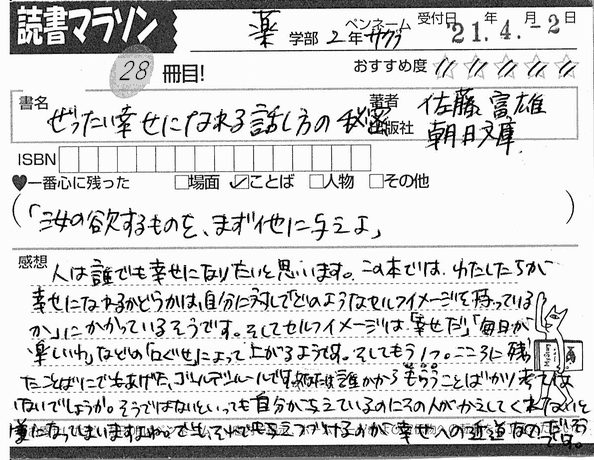 読書マラソン
薬 学部 2年 ペンネーム サクラ 受付日 21.年4.月-2日
28 冊目! おすすめ度 ☆☆☆☆☆
書名 ぜったい幸せになれる話し方の秘密 著者 佐藤富雄
出版社 朝日文庫
ISBN
♥一番心に残った □場面 ☑ことば □人物 □その他
(「汝の欲するものを、まず他に与えよ」)
感想 人は誰でも幸せになりたいと思います。この本では、わたしたちが
幸せになれるかどうかは、自分に対して「どのようなセルフイメージを持っている
か」にかかっているそうです。そしてセルフイメージは「幸せだ」「毎日が
楽しい」などの「口ぐせ」によって上がるようです。そしてもう1つ。こころに残っ
たことばにでもあげた、ゴールデンルールです。あなたは誰かからもらうことばかり考えては
ないでしょうか。そうではないといっても自分が与えているのにその人がかえしてくれないと
嫌になってしまいますよね。でも、それでも与えつづけるのが、幸せへの近道なのだそ
うです。